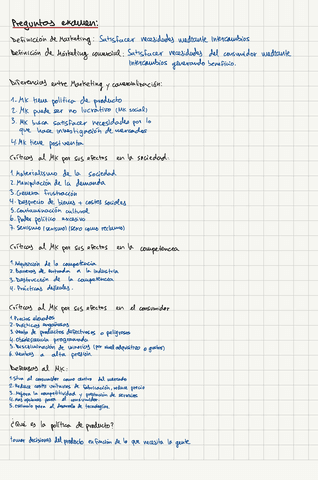 Preguntas examen:
Definición de Marketing: Satisfacer necesidades mediante intercambios
Definición de Marketing comercial: Satisfacer necesidades del consumidor mediante
intercambios generando beneficio.
Diferencias entre Marketing y comercialización:
1. MK tiene política de producto
2. MK puede ser no lucrativo (MK social)
3. MK busca satisfacer necesidades por lo
que hace investigación de mercados
4. MK tiene post venta
Críticas al MK por sus efectos en la sociedad:
1. Materialismo de la sociedad
2. Manipulación de la demanda
3. Genera frustración
4. Desprecio de bienes + costes sociales
5. Contaminación cultural
6. Poder político excesivo
7. Sexismo (sexismo) (sexo como reclamo)
Críticas al MK por sus efectos en la competencia
1. Adquisición de la competencia
2. Barreras de entrada a la industria
3. Destrucción de la competencia
4. Prácticas desleales.
Críticas al MK por sus efectos en el consumidor
1. Precios elevados
2. Prácticas engañosas
3. Venta de productos defectuosos o peligrosos
4. Obsolescencia programada
5. Discriminación de minorías (por nivel adquisitivo o gustos)
6. Ventas a alta presión
Defensas al MK:
1. Sitúa al consumidor como centro del mercado
2. Reduce costes unitarios de fabricación, reduce precio
3. Mejora la competitividad y prestación de servicios
4. Más opciones para el consumidor.
5. estímulo para el desarrollo de tecnologías.
¿Qué es la política de producto?
Tomar decisiones del producto en función de lo que necesita la gente